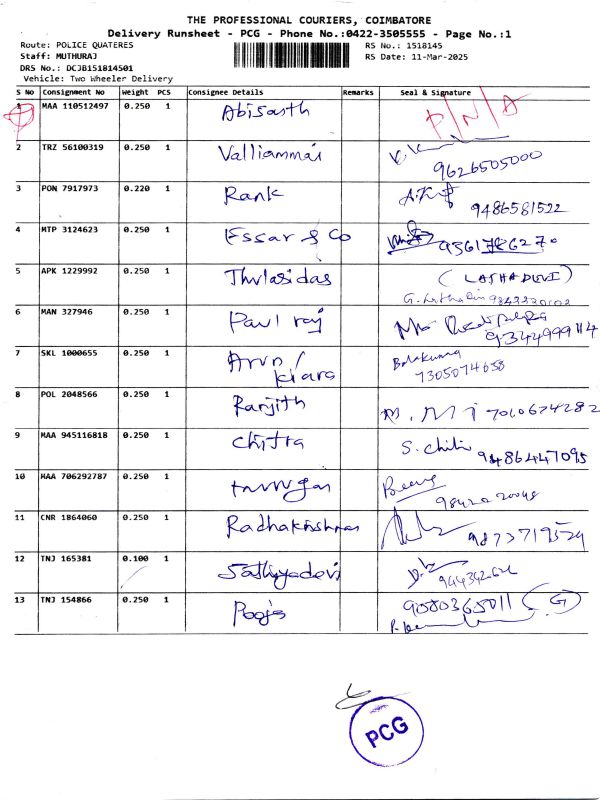 THE PROFESSIONAL COURIERS, COIMBATORE
Delivery Runsheet - PCG - Phone No.:0422-3505555 - Page No.:1
Route: POLICE QUATERES RS No.: 1518145
Staff: MUTHURAJ RS Date: 11-Mar-2025
DRS No.: DCJB151814501
Vehicle: Two Wheeler Delivery
S No Consignment No Weight PCS Consignee Details Remarks Seal & Signature
1 MAA 110512497 0.250 1 Abisanth P/N/A
2 TRZ 56100319 0.250 1 Valliammai
9626505000
3 PON 7917973 0.220 1 Rank
9486581522
4 MTP 3124623 0.250 1 Essar & Co
5 APK 1229992 0.250 1 Thulasidas
6 MAN 327946 0.250 1 Paul raj
7 SKL 1000655 0.250 1 Arun / Kiara Balakumar
7305074658
8 POL 2048566 0.250 1 Ranjith 7010674282
9 MAA 945116818 0.250 1 Chitra S. Chitra 9486447095
10 MAA 706292787 0.250 1
11 CNR 1864060 0.250 1 Radhakrishnan
12 TNJ 165381 0.100 1 Sathyadevi
13 TNJ 154866 0.250 1 Pooja G
PCG